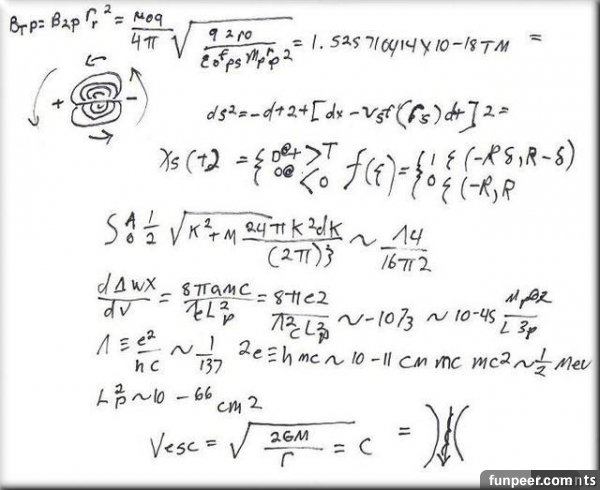 BTP = B2P Γr² = μ0q / 4π √(q 2 r0 / ε0 f ps Mp r p 2) = 1.525710414 × 10-18 TM =
+ -
ds² = -dt2 + [dx - vsf(rs)dt] 2 =
Xs (t2 = { 0@t > T 0@ < 0 f(ξ) = { 1 { (-R δ, R - δ) 0 { (-R, R
S A 0 1/2 √K² + M 24πK²dK / (2π)3 ~ Λ4 / 16π2
dΔwx / dv = 8πamc / ƛc L²p = 8πe2 / Λ²c L²p ~ -1073 ~ 10-45 MpB2 / L3p
Λ ≡ e² / hc ~ 1 / 137 2e ≡ h mc ~ 10 - 11 cm mc mc2 ~ 1/2 Mev
L²p ~ 10 - 66 cm2
Vesc = √(2GM / r) = C =
funpeer.comnts